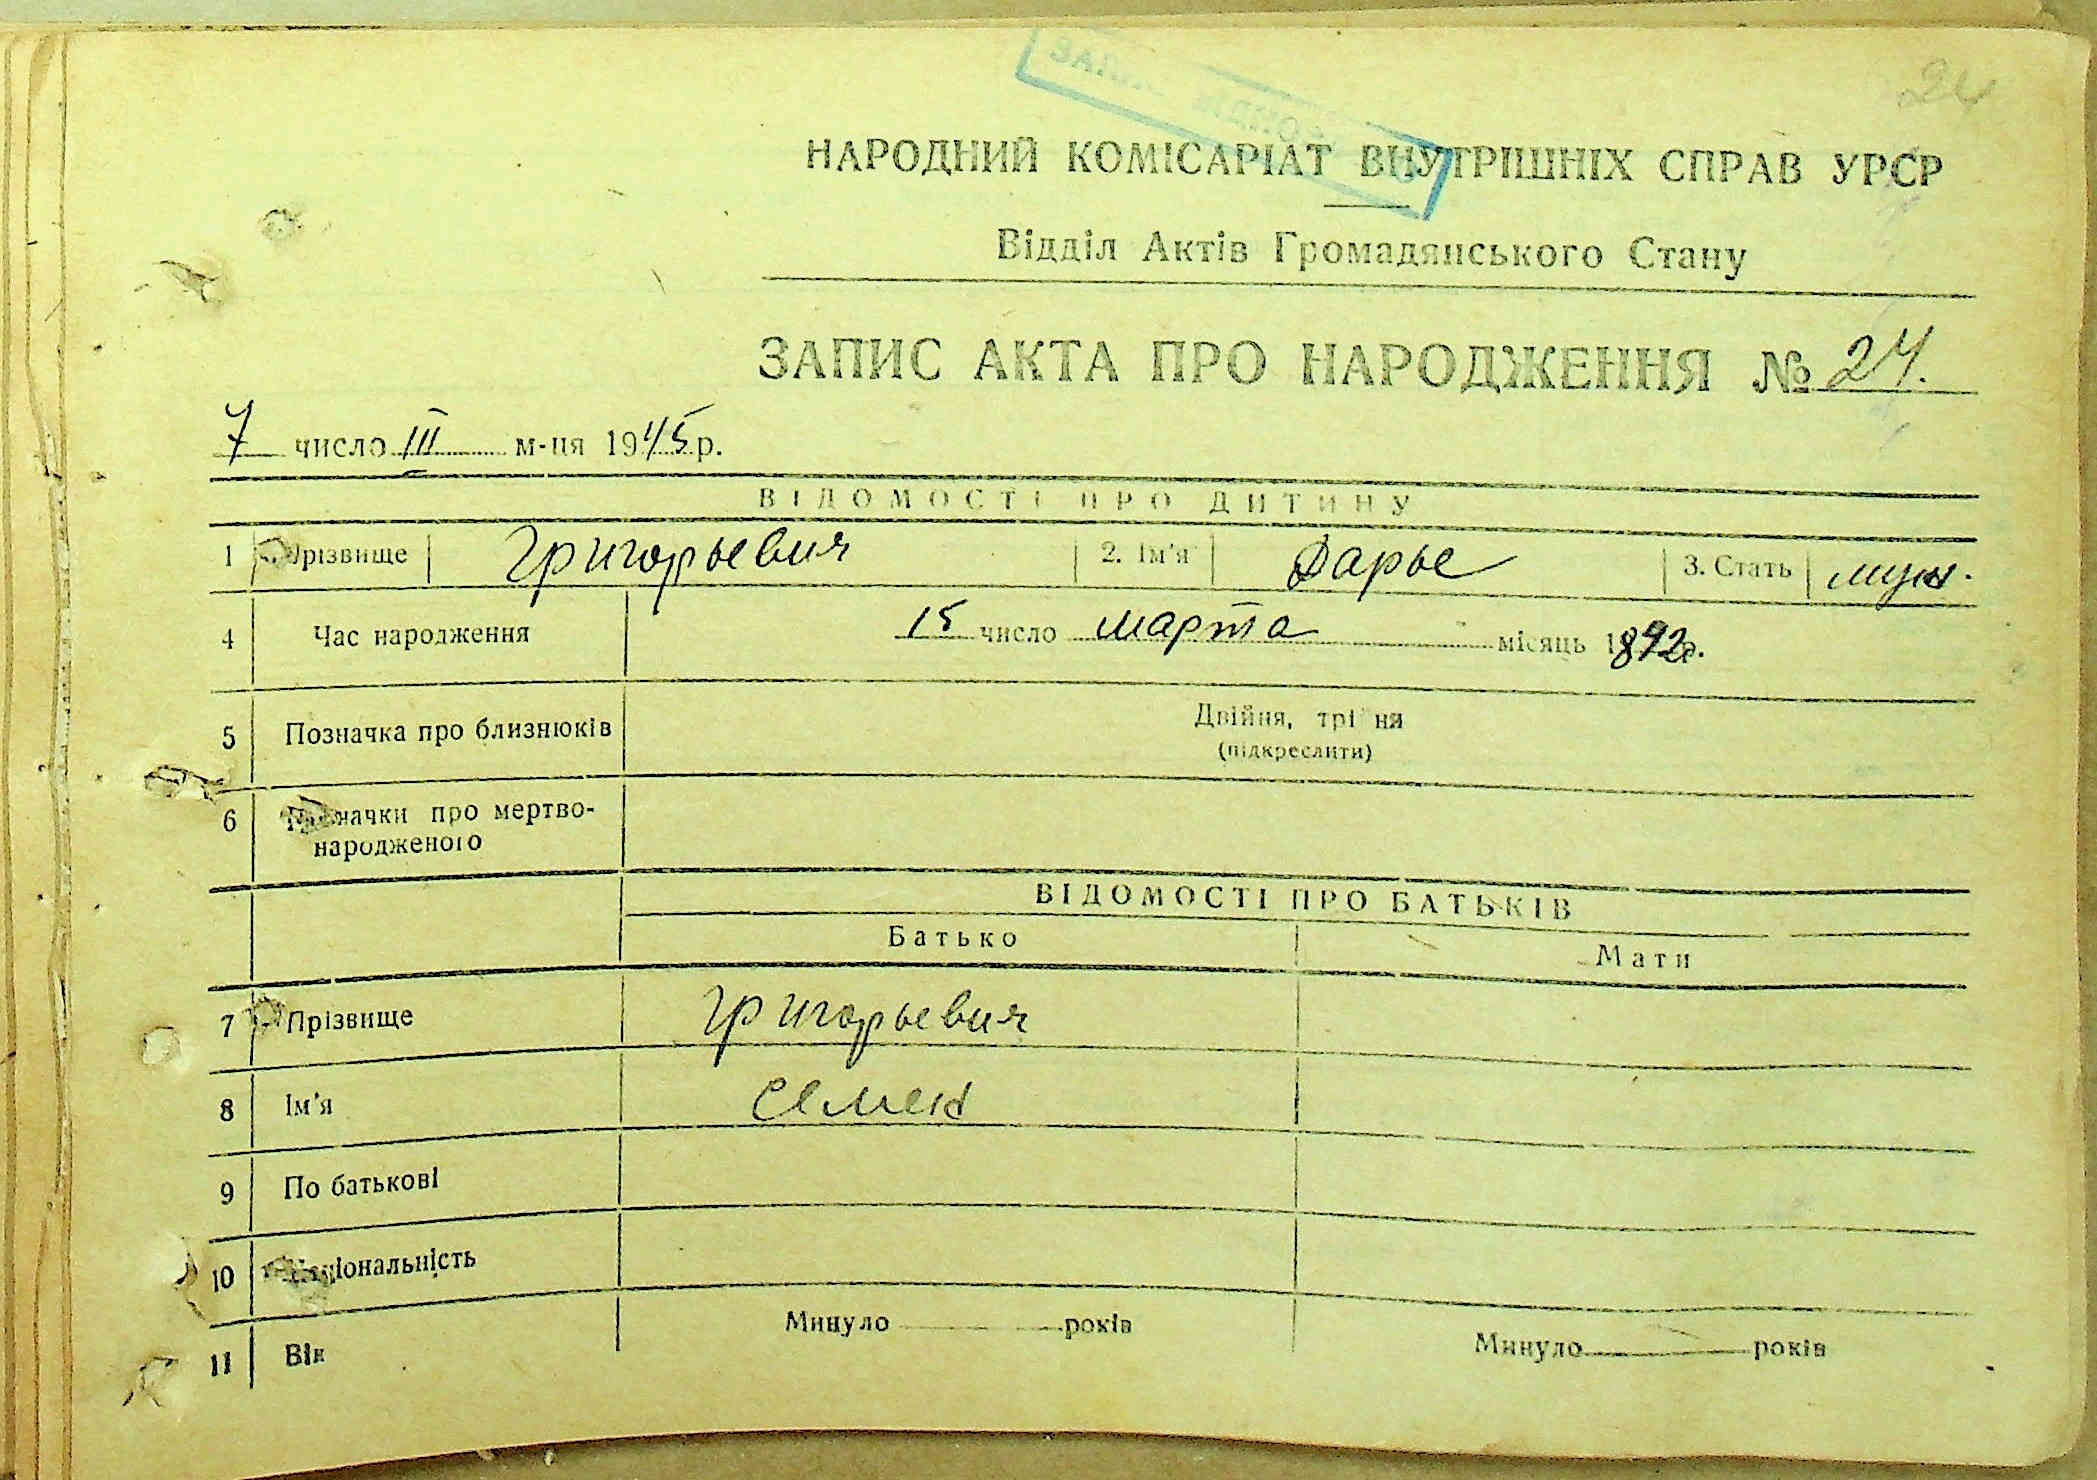 24
НАРОДНИЙ КОМІСАРІАТ ВНУТРІШНІХ СПРАВ УРСР
Відділ Актів Громадянського Стану
ЗАПИС АКТА ПРО НАРОДЖЕННЯ № 24.
7 число III м-ця 1945 р.
ВІДОМОСТІ ПРО ДИТИНУ
1 Прізвище Григорьевич 2. Ім'я Дарье 3. Стать муж.
4 Час народження 15 число марта місяць 1892р.
5 Позначка про близнюків Двійня, трі ня
(підкреслити)
6 Позначки про мертво-
народженого
ВІДОМОСТІ ПРО БАТЬКІВ
Батько Мати
7 Прізвище Григорьевич
8 Ім'я Семен
9 По батькові
10 Національність
11 Вік Минуло років Минуло років